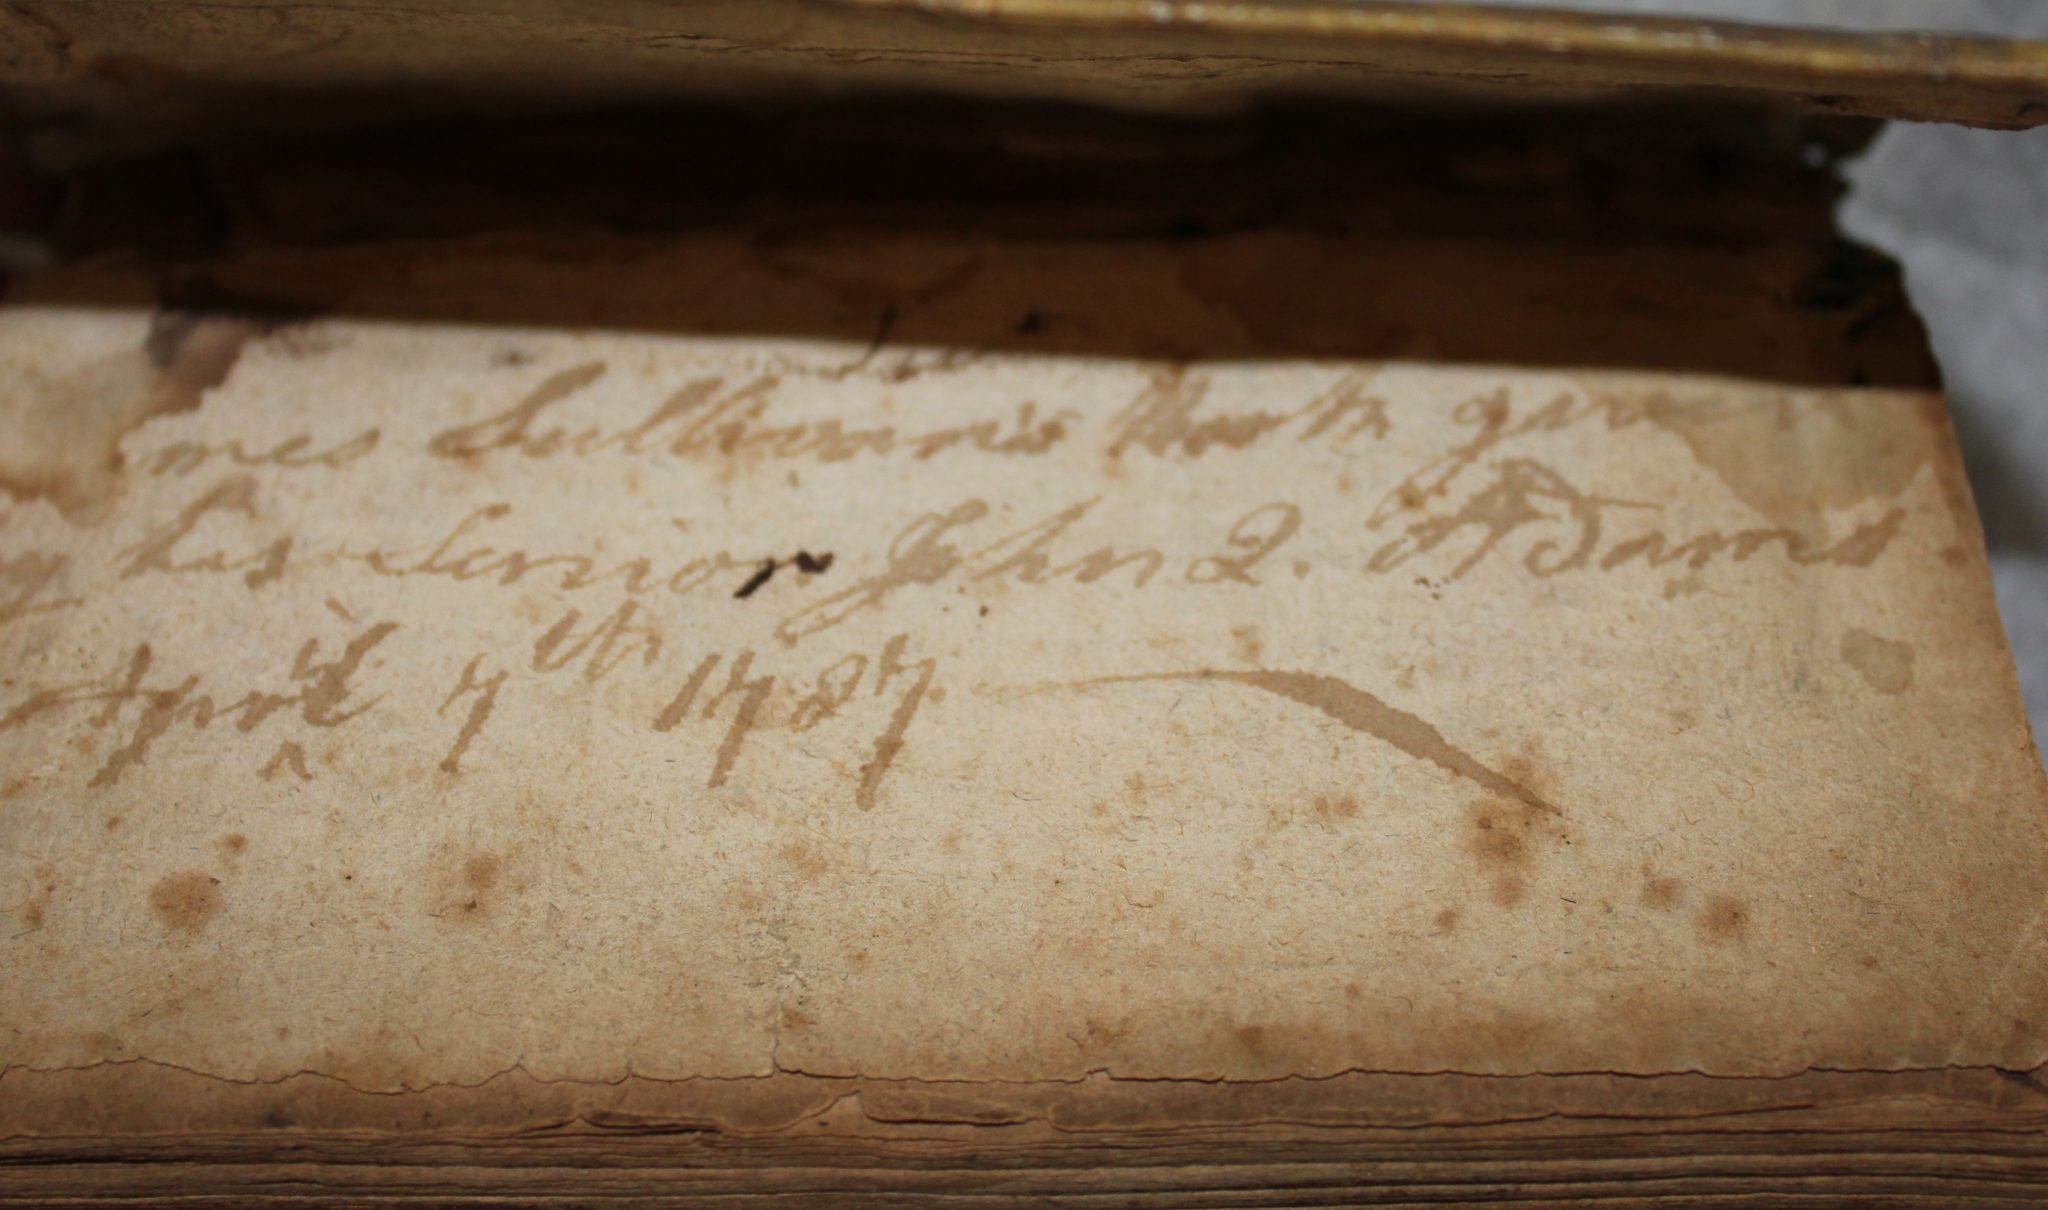 mes Sullivan's Book giv
by his Senior John Q. Adams.
April 7th 1787